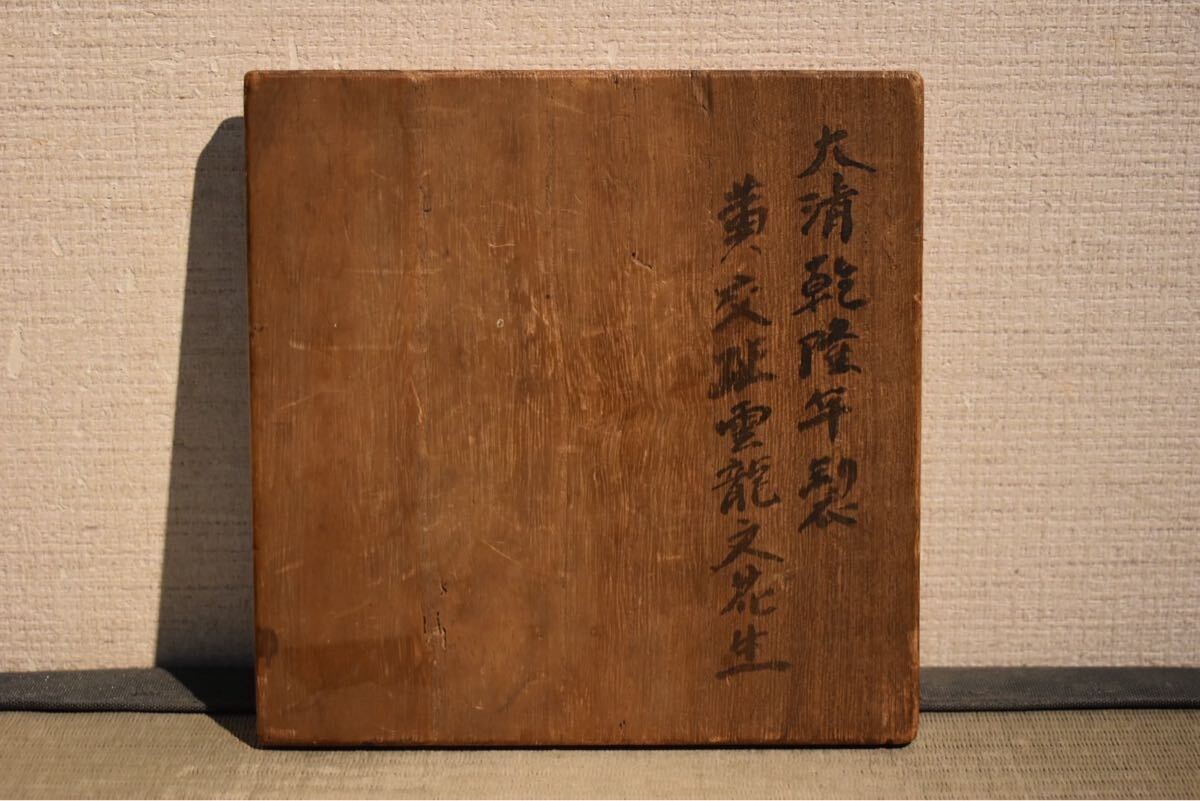 大清乾隆年製
黄交趾雲龍文花生